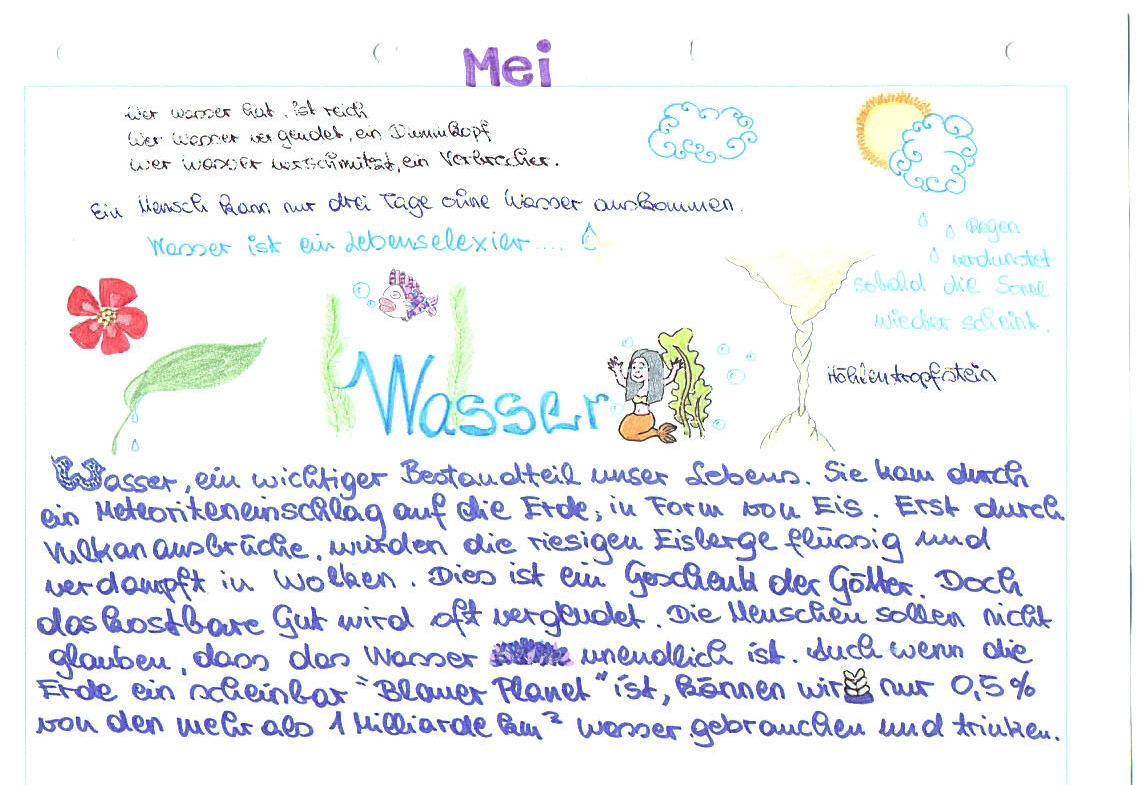 Mei
Wer wasser hat, ist reich
Wer Wasser vergeudet, ein Dummkopf
Wer wasser verschmutzt, ein Verbrecher.
Ein Mensch kann nur drei Tage ohne Wasser auskommen.
Wasser ist ein Lebenselexier....
Regen
verdunstet
sobald die Sonne
wieder scheint.
Höhlentropfstein
Wasser
Wasser, ein wichtiger Bestandteil unser Lebens. Sie kam durch
ein Meteoriteneinschlag auf die Erde, in Form von Eis. Erst durch
Vulkanausbrüche, wurden die riesigen Eisberge flüssig und
verdampft in Wolken. Dies ist ein Geschenk der Götter. Doch
das kostbare Gut wird oft vergeudet. Die Menschen sollen nicht
glauben, dass das Wasser unendlich ist. Auch wenn die
Erde ein scheinbar "Blauer Planet" ist, können wir nur 0,5%
von den mehr als 1 Milliarde km² wasser gebrauchen und trinken.